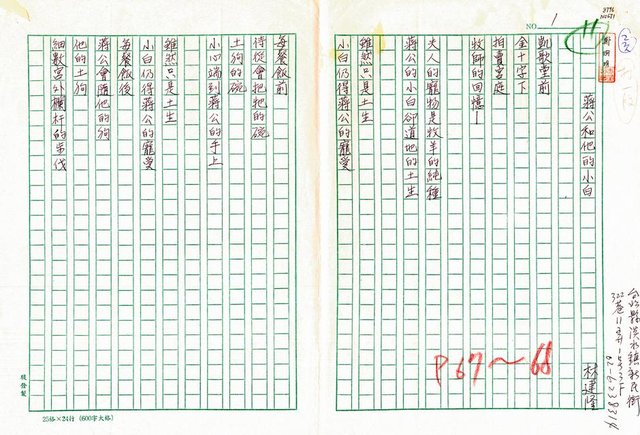 NO. 1
蔣公和他的小白
林建隆
凱歌堂前
金十字下
拍賣宮庭
牧師的回憶—
夫人的寵物是牧羊的純種
蔣公的小白卻道地的土生
雖然只是土生
小白仍得蔣公的寵愛
每餐飯前
侍從會把牠的碗
土狗的碗
小心端到蔣公的手上
雖然只是土生
小白仍得蔣公的寵愛
每餐飯後
蔣公會隨他的狗
他的土狗
細數宮外欄杆的步伐
P67～68
25格×24行 (600字大格)